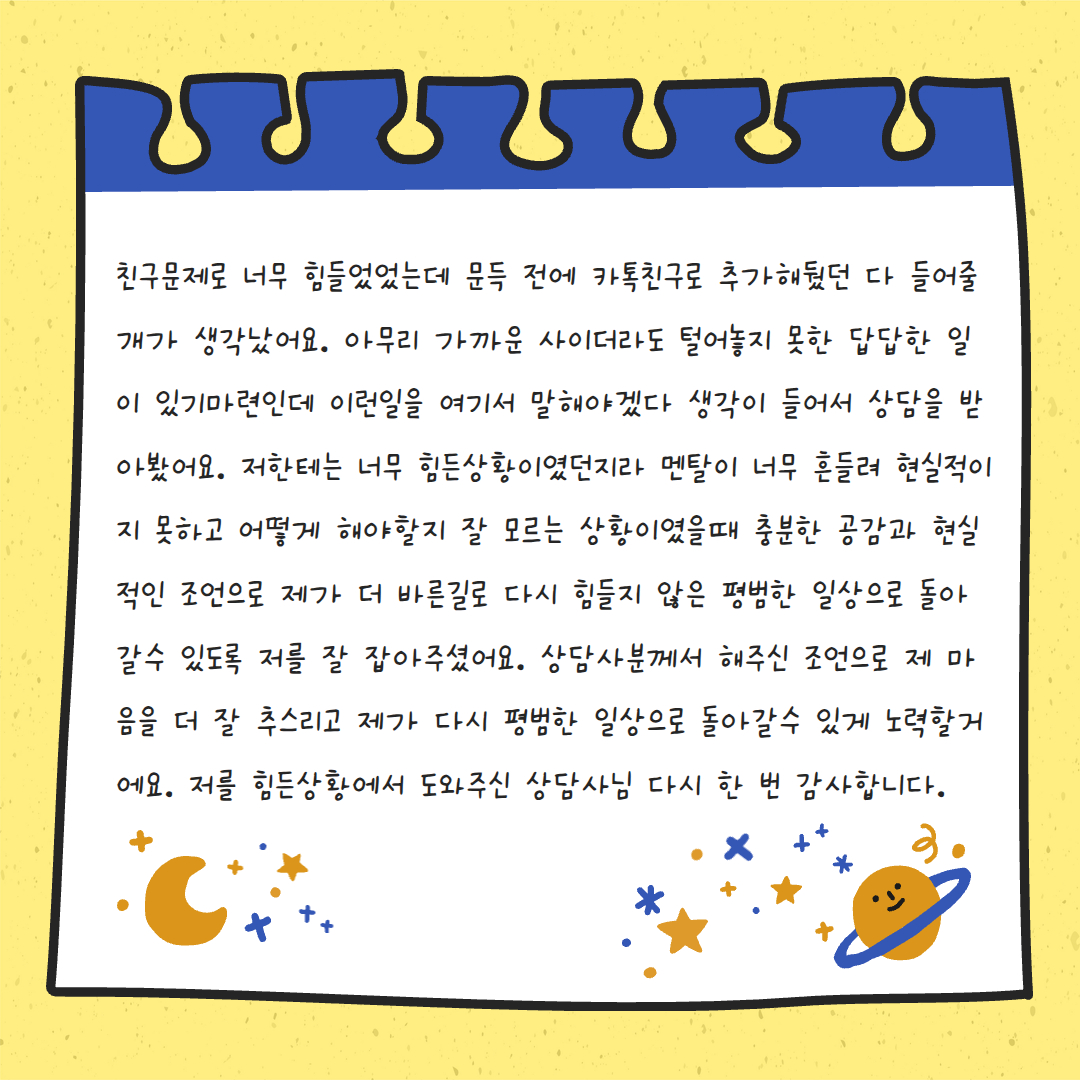 친구문제로 너무 힘들었었는데 문득 전에 카톡친구로 추가해뒀던 다 들어줄
개가 생각났어요. 아무리 가까운 사이더라도 털어놓지 못한 답답한 일
이 있기마련인데 이런일을 여기서 말해야겠다 생각이 들어서 상담을 받
아봤어요. 저한테는 너무 힘든상황이였던지라 멘탈이 너무 흔들려 현실적이
지 못하고 어떻게 해야할지 잘 모르는 상황이였을때 충분한 공감과 현실
적인 조언으로 제가 더 바른길로 다시 힘들지 않은 평범한 일상으로 돌아
갈수 있도록 저를 잘 잡아주셨어요. 상담사분께서 해주신 조언으로 제 마
음을 더 잘 추스리고 제가 다시 평범한 일상으로 돌아갈수 있게 노력할거
에요. 저를 힘든상황에서 도와주신 상담사님 다시 한 번 감사합니다.